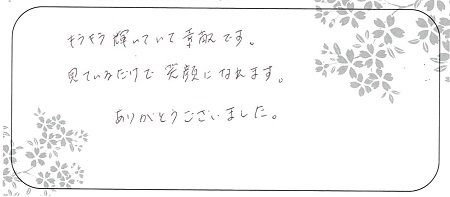 キラキラ輝いていて素敵です。
見ているだけで笑顔になれます。
ありがとうございました。